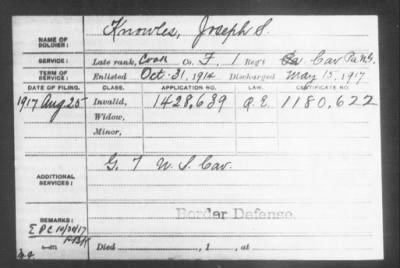 NAME OF SOLDIER: Knowles, Joseph S.
SERVICE: Late rank, Cook Co. F, 1 Reg't Cav Pa NG.
TERM OF SERVICE: Enlisted Oct. 31, 1914 Discharged May 15, 1917
DATE OF FILING. CLASS. APPLICATION NO. LAW. CERTIFICATE NO.
1917 Aug 25 Invalid, 1428,639 1180,622
Widow,
Minor,
ADDITIONAL SERVICES: G. 7 U.S. Cav.
Border Defense.
REMARKS:
E P C 10/20/17
Died , 1 , at